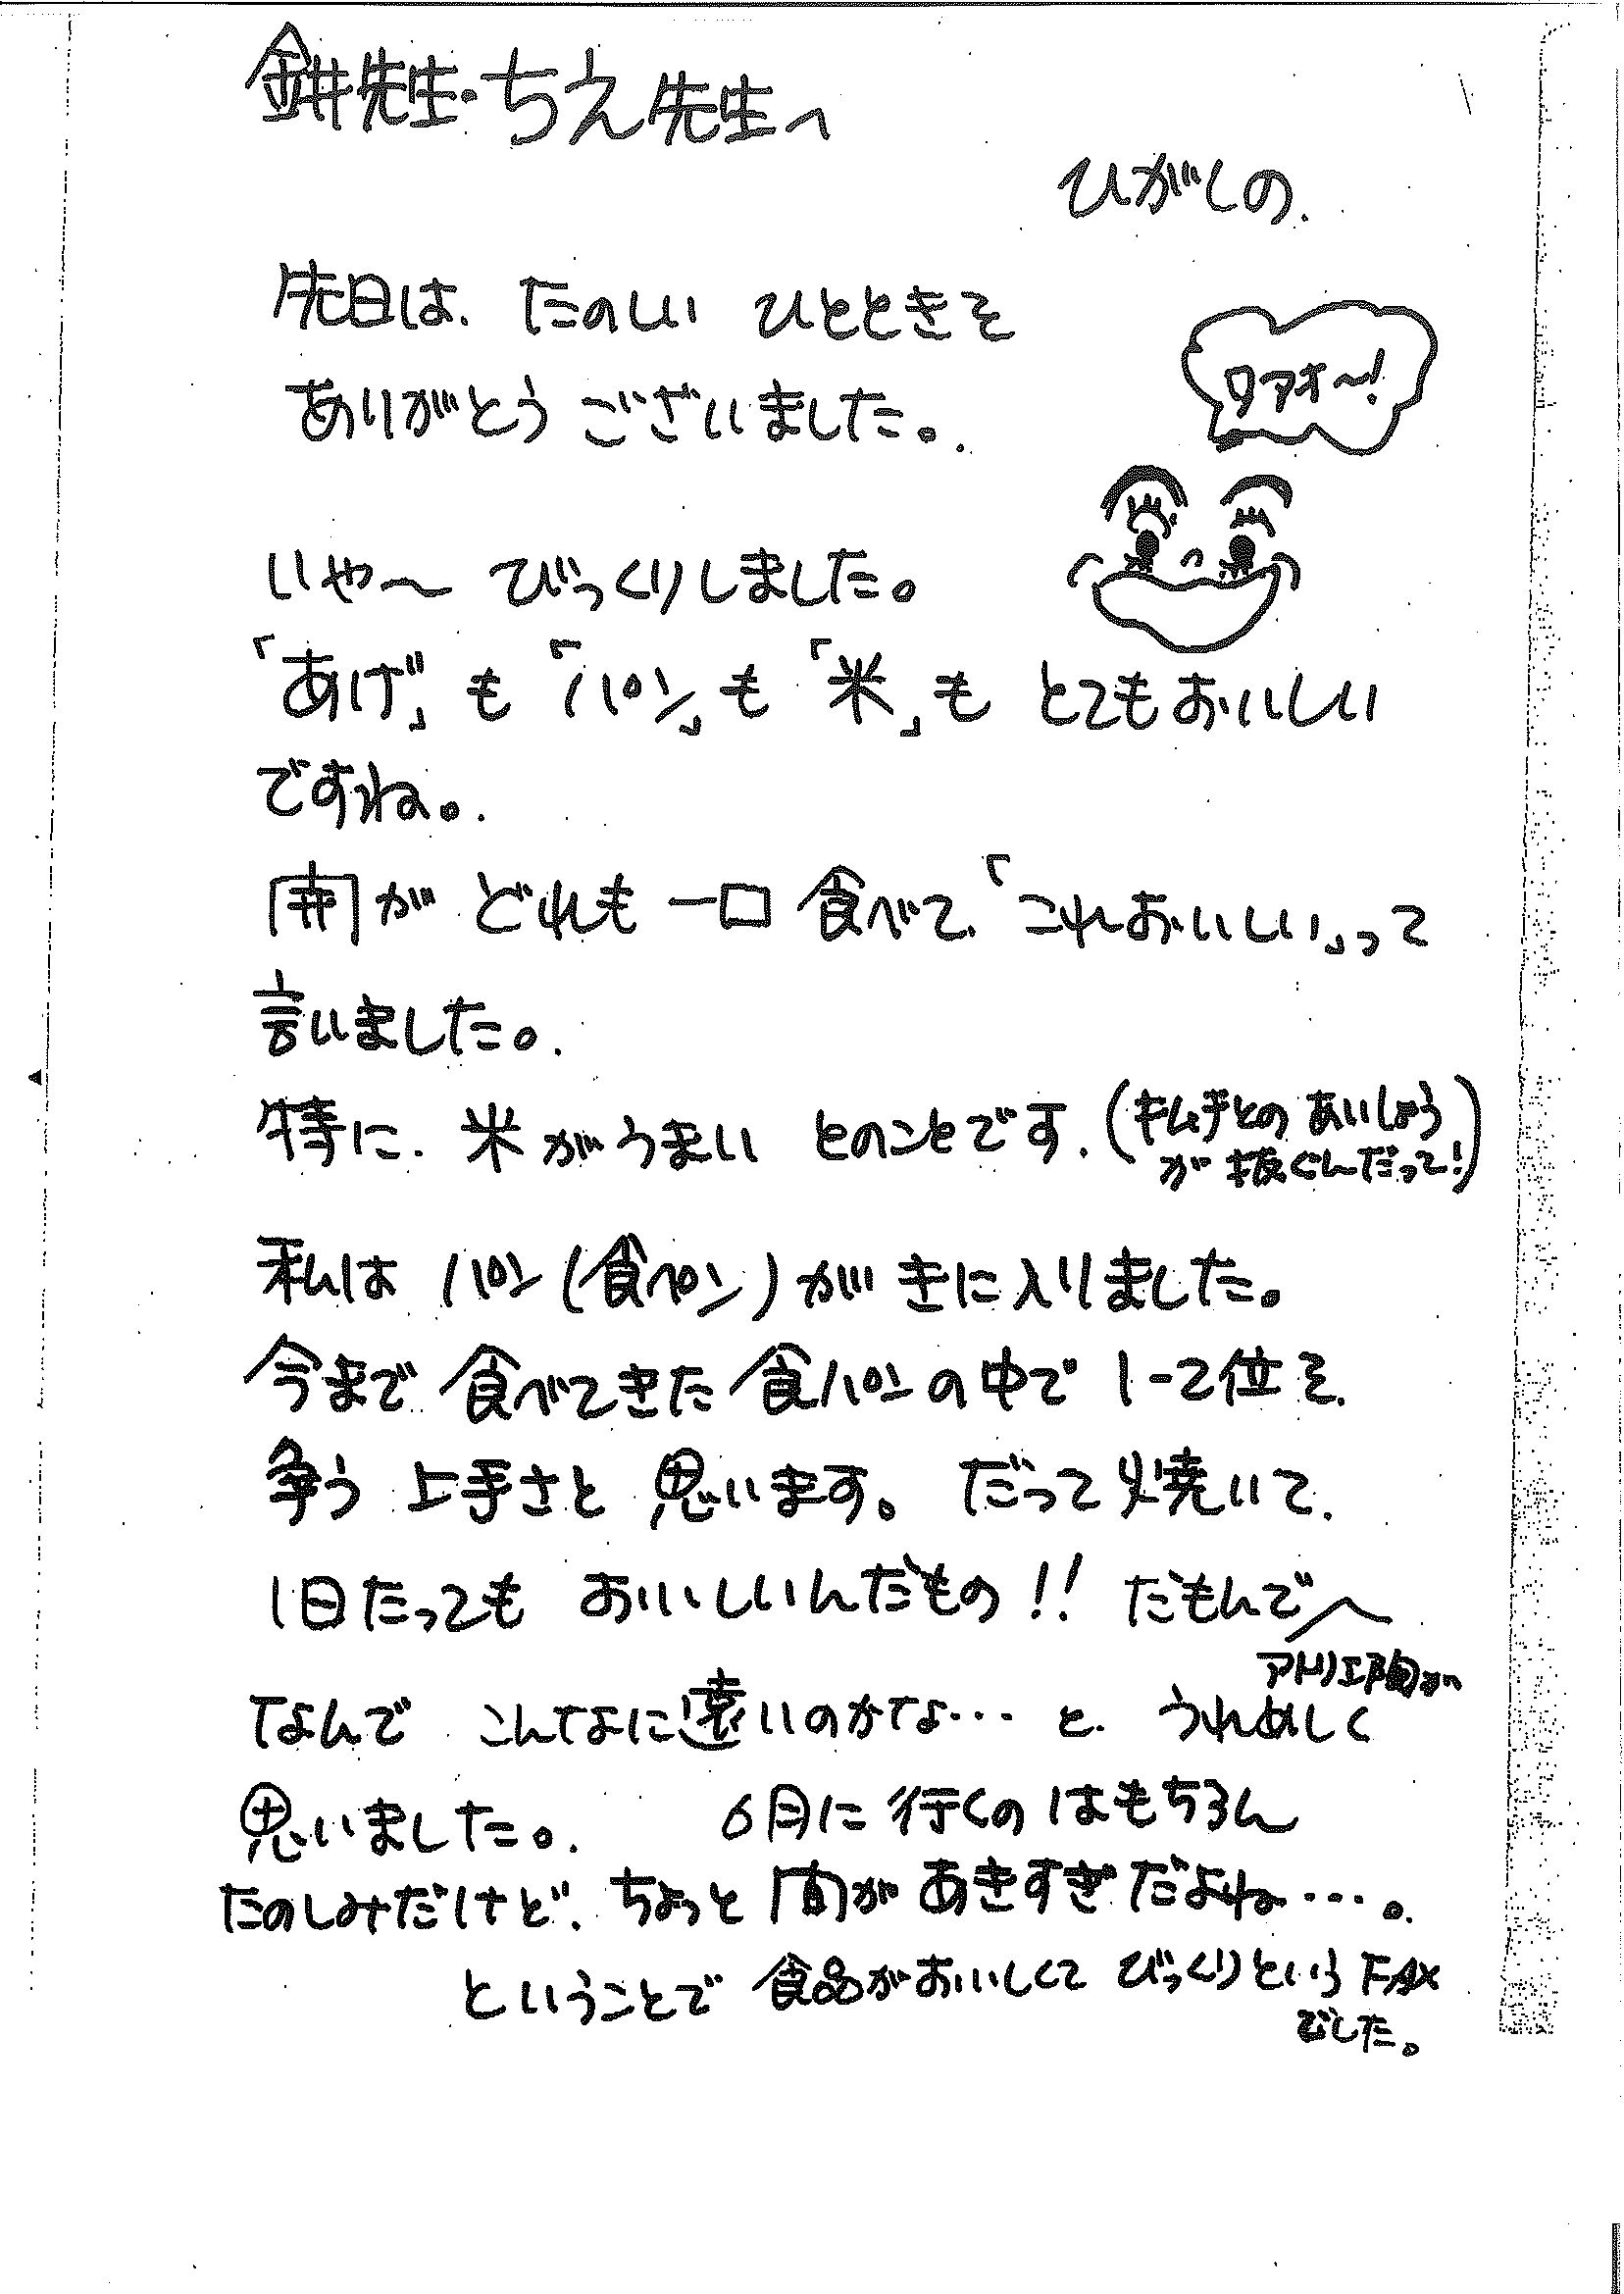 先生・ちえ先生へ
ひがしの.
先日は、たのしい ひとときを
ワァオ〜!
ありがとう ございました。
いや〜 びっくりしました。
「あげ」も「パン」も「米」も とてもおいしい
ですね。
が どれも 一口 食べて、「これおいしい」って
言いました。
特に、米がうまい とのことです.(キムチとの あいしょう
が 抜ぐんだって!)
私は パン(食パン)が きに入りました。
今まで 食べてきた 食パンの中で 1-2位を、
争う 上手さと 思います。 だって 焼いて、
1日たっても おいしいんだもの!! だもんで
アトリエ陶が
なんで こんなに遠いのかな… と、うらめしく
思いました。 6月に 行くの はもちろん
たのしみだけど、ちょっと 間が あきすぎだよね…。
ということで 食品がおいしくて びっくりという FAX
でした。